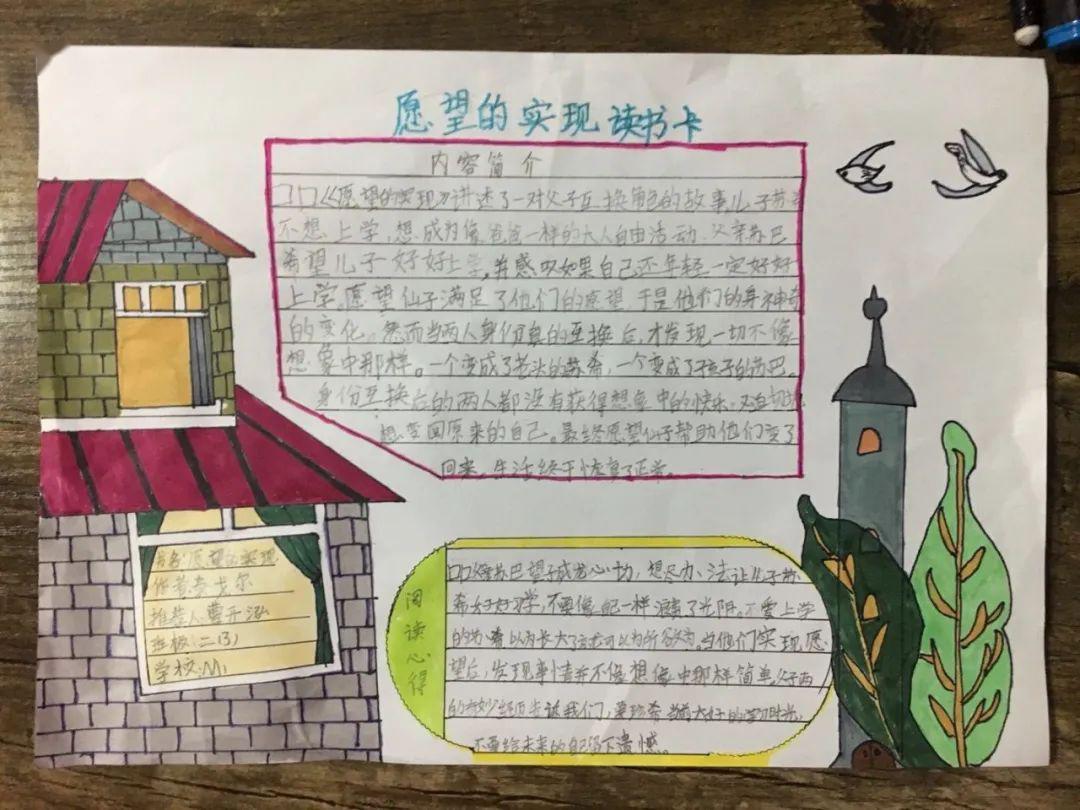 愿望的实现读书卡
内容简介
《愿望的实现》讲述了一对父子互换角色的故事儿子苏希
不想上学,想成为像爸爸一样的大人自由活动、父亲苏巴
希望儿子好好上学,并感叹如果自己还年轻一定好好
上学。愿望仙子满足了他们的愿望于是他们的身神奇
的变化。然而当两人身份真的互换后,才发现一切不像
想象中那样。一个变成了老头的苏希,一个变成了孩子的苏巴。
身份互换后的两人都没有获得想象中的快乐,又迫切地
想变回原来的自己。最终愿望仙子帮助他们变了
回来,生活终于恢复了正常。
书名:愿望的实现
作者:泰戈尔
推荐人:曹开泓
班级:二(3)
学校:
阅读心得
苏巴望子成龙心切,想尽办法让儿子苏
希好好学,不要像自己一样浪费了光阴。不爱上学
的苏希以为长大了就可以为所欲为。当他们实现愿
望后,发现事情并不像想像中那样简单。父子两人
的奇妙经历告诉我们,要珍希当前大好的学习时光,
不要给未来的自己留下遗憾。